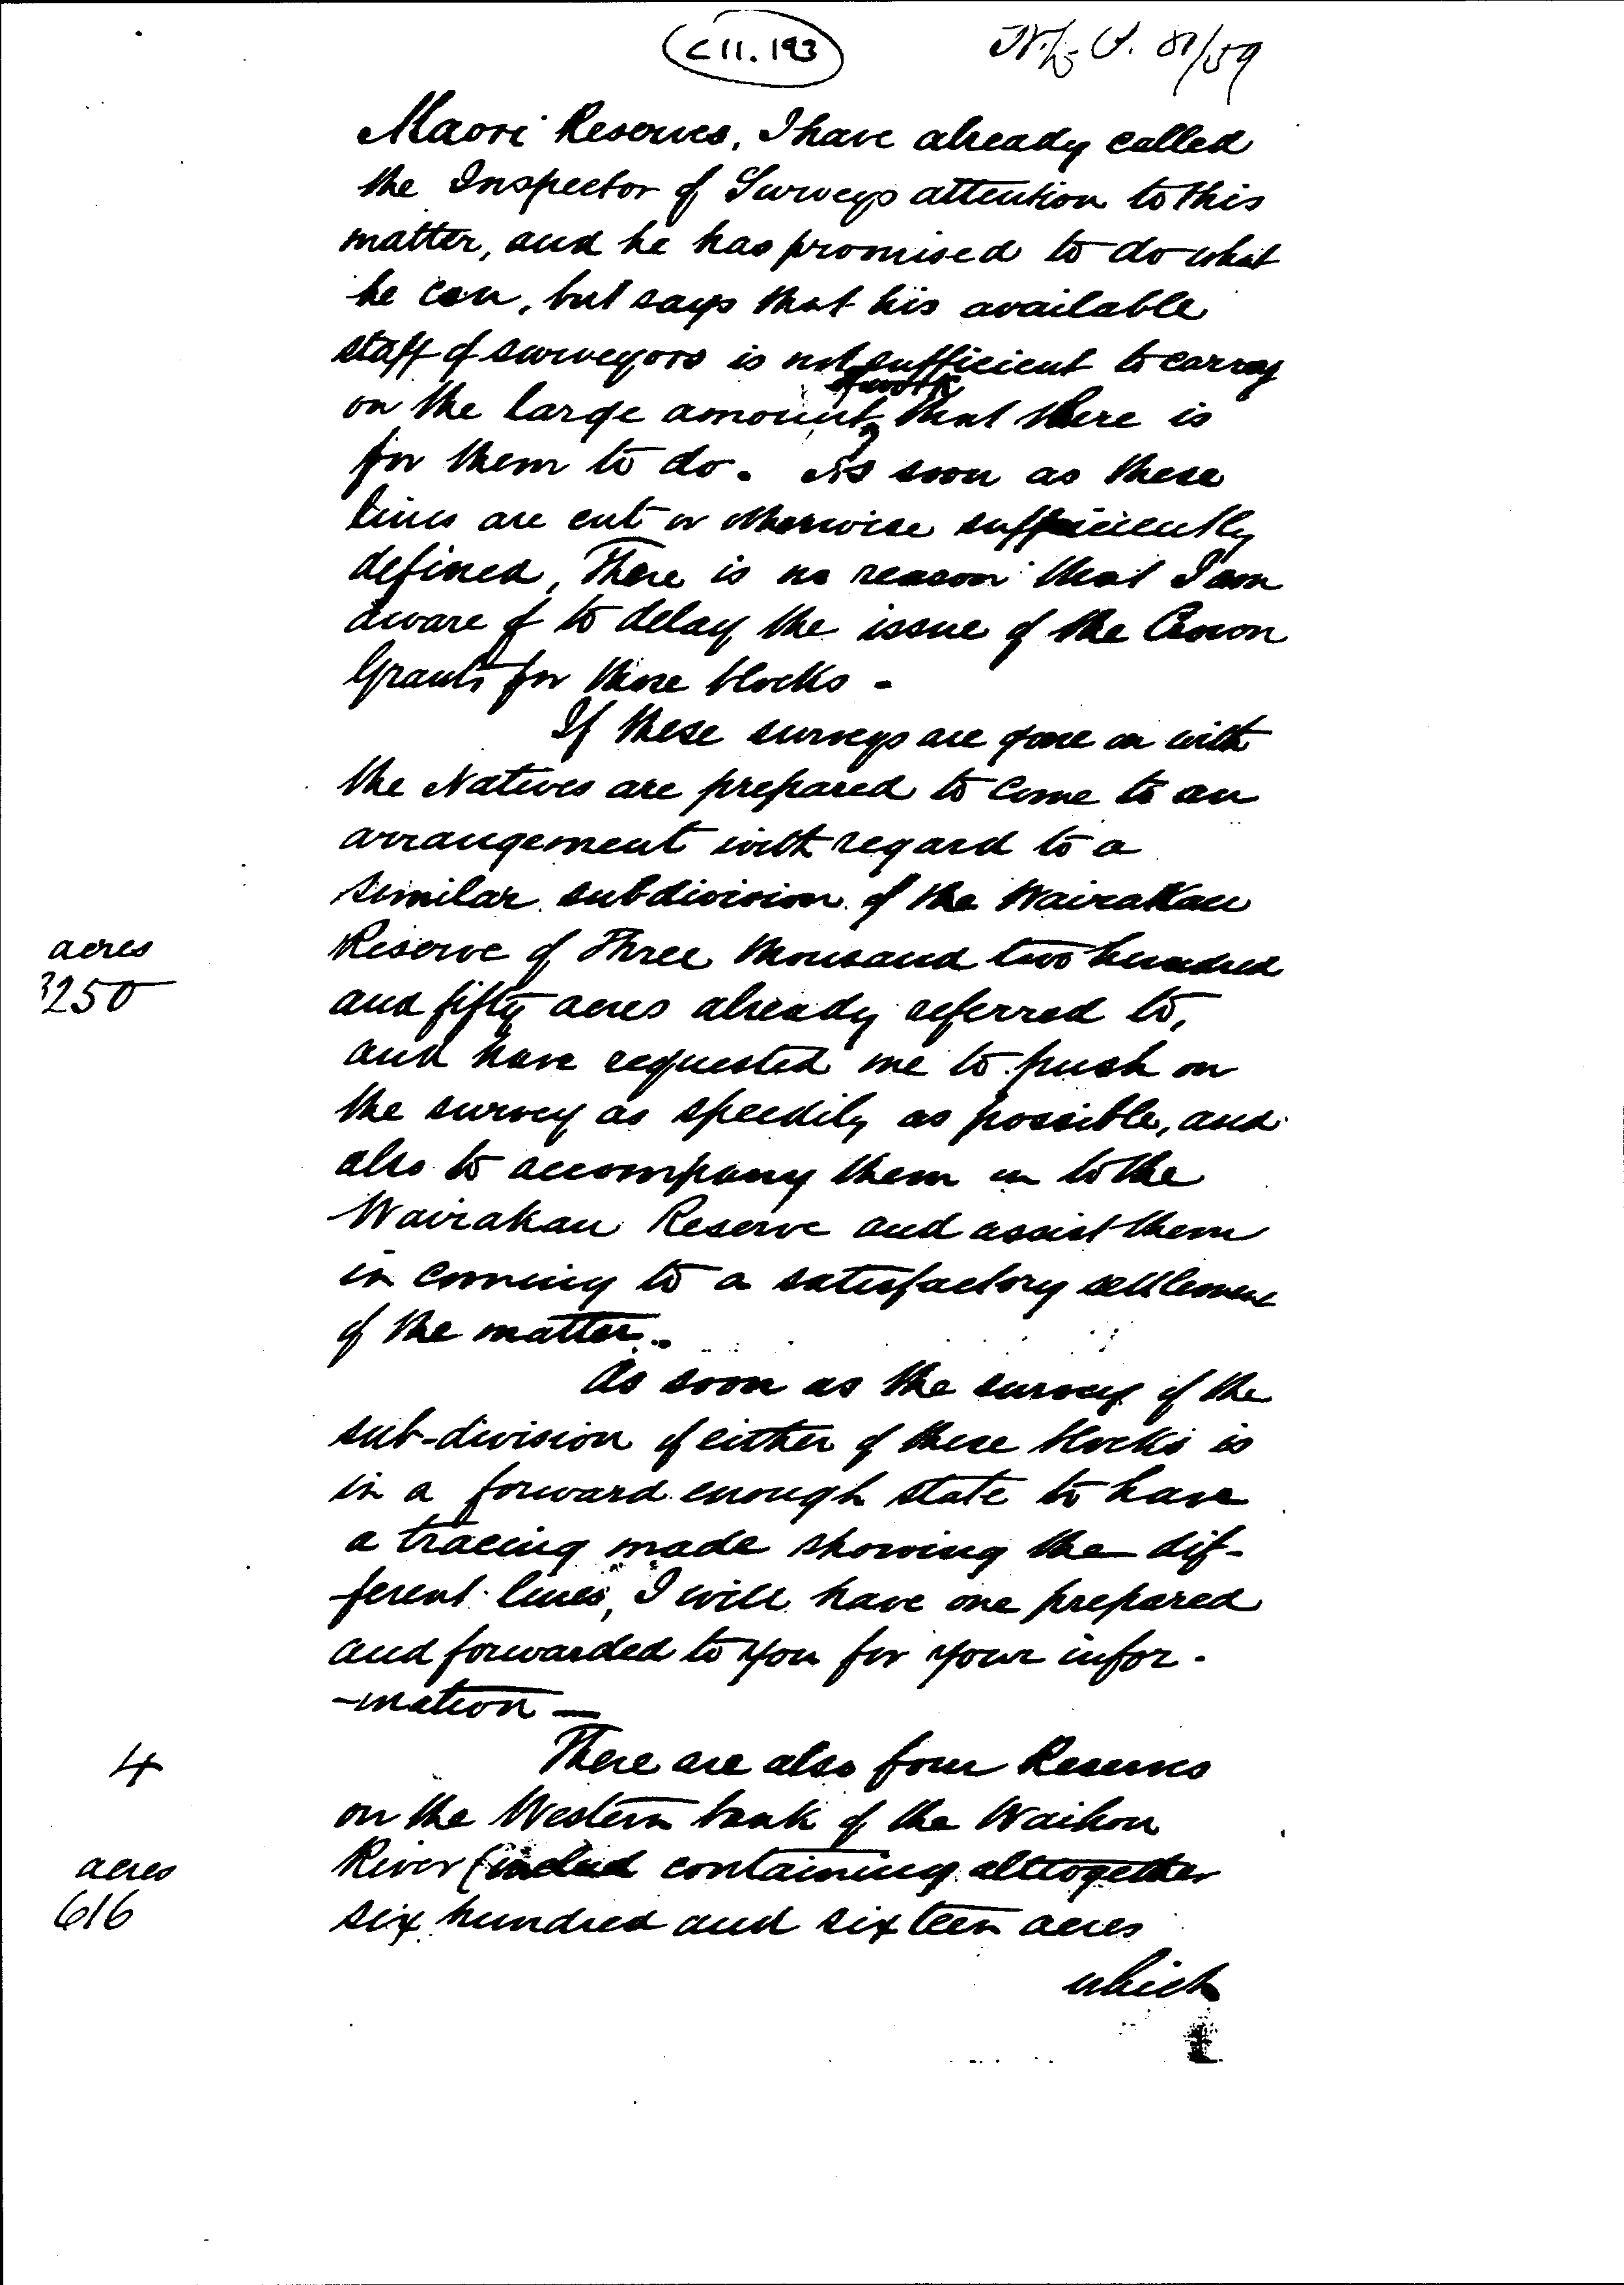 C11.193
81/59
Maori Reserves, I have already called
the Inspector of Surveys attention to this
matter, and he has promised to do what
he can, but says that his available
staff of surveyors is not sufficient to carry
of work
on the large amount that there is
for them to do. As soon as these
lines are cut or otherwise sufficiently
defined, There is no reason that I am
aware of to delay the issue of the Crown
Grants for these blocks -
If these surveys are gone on with
the Natives are prepared to come to an
arrangement with regard to a
similar subdivision of the Wairakau
acres
Reserve of Three thousand two hundred
3250
and fifty acres already referred to,
and have requested me to push on
the survey as speedily as possible, and
also to accompany them on to the
Wairakau Reserve and assist them
in coming to a satisfactory settlement
of the matter.
As soon as the survey of the
sub-division of either of these blocks is
in a forward enough state to have
a tracing made showing the dif-
-ferent lines, I will have one prepared
and forwarded to you for your infor-
-mation —
4
There are also four Reserves
on the Western bank of the Waihou
acres
River (includ containing alltogether
616
six hundred and sixteen acres
which